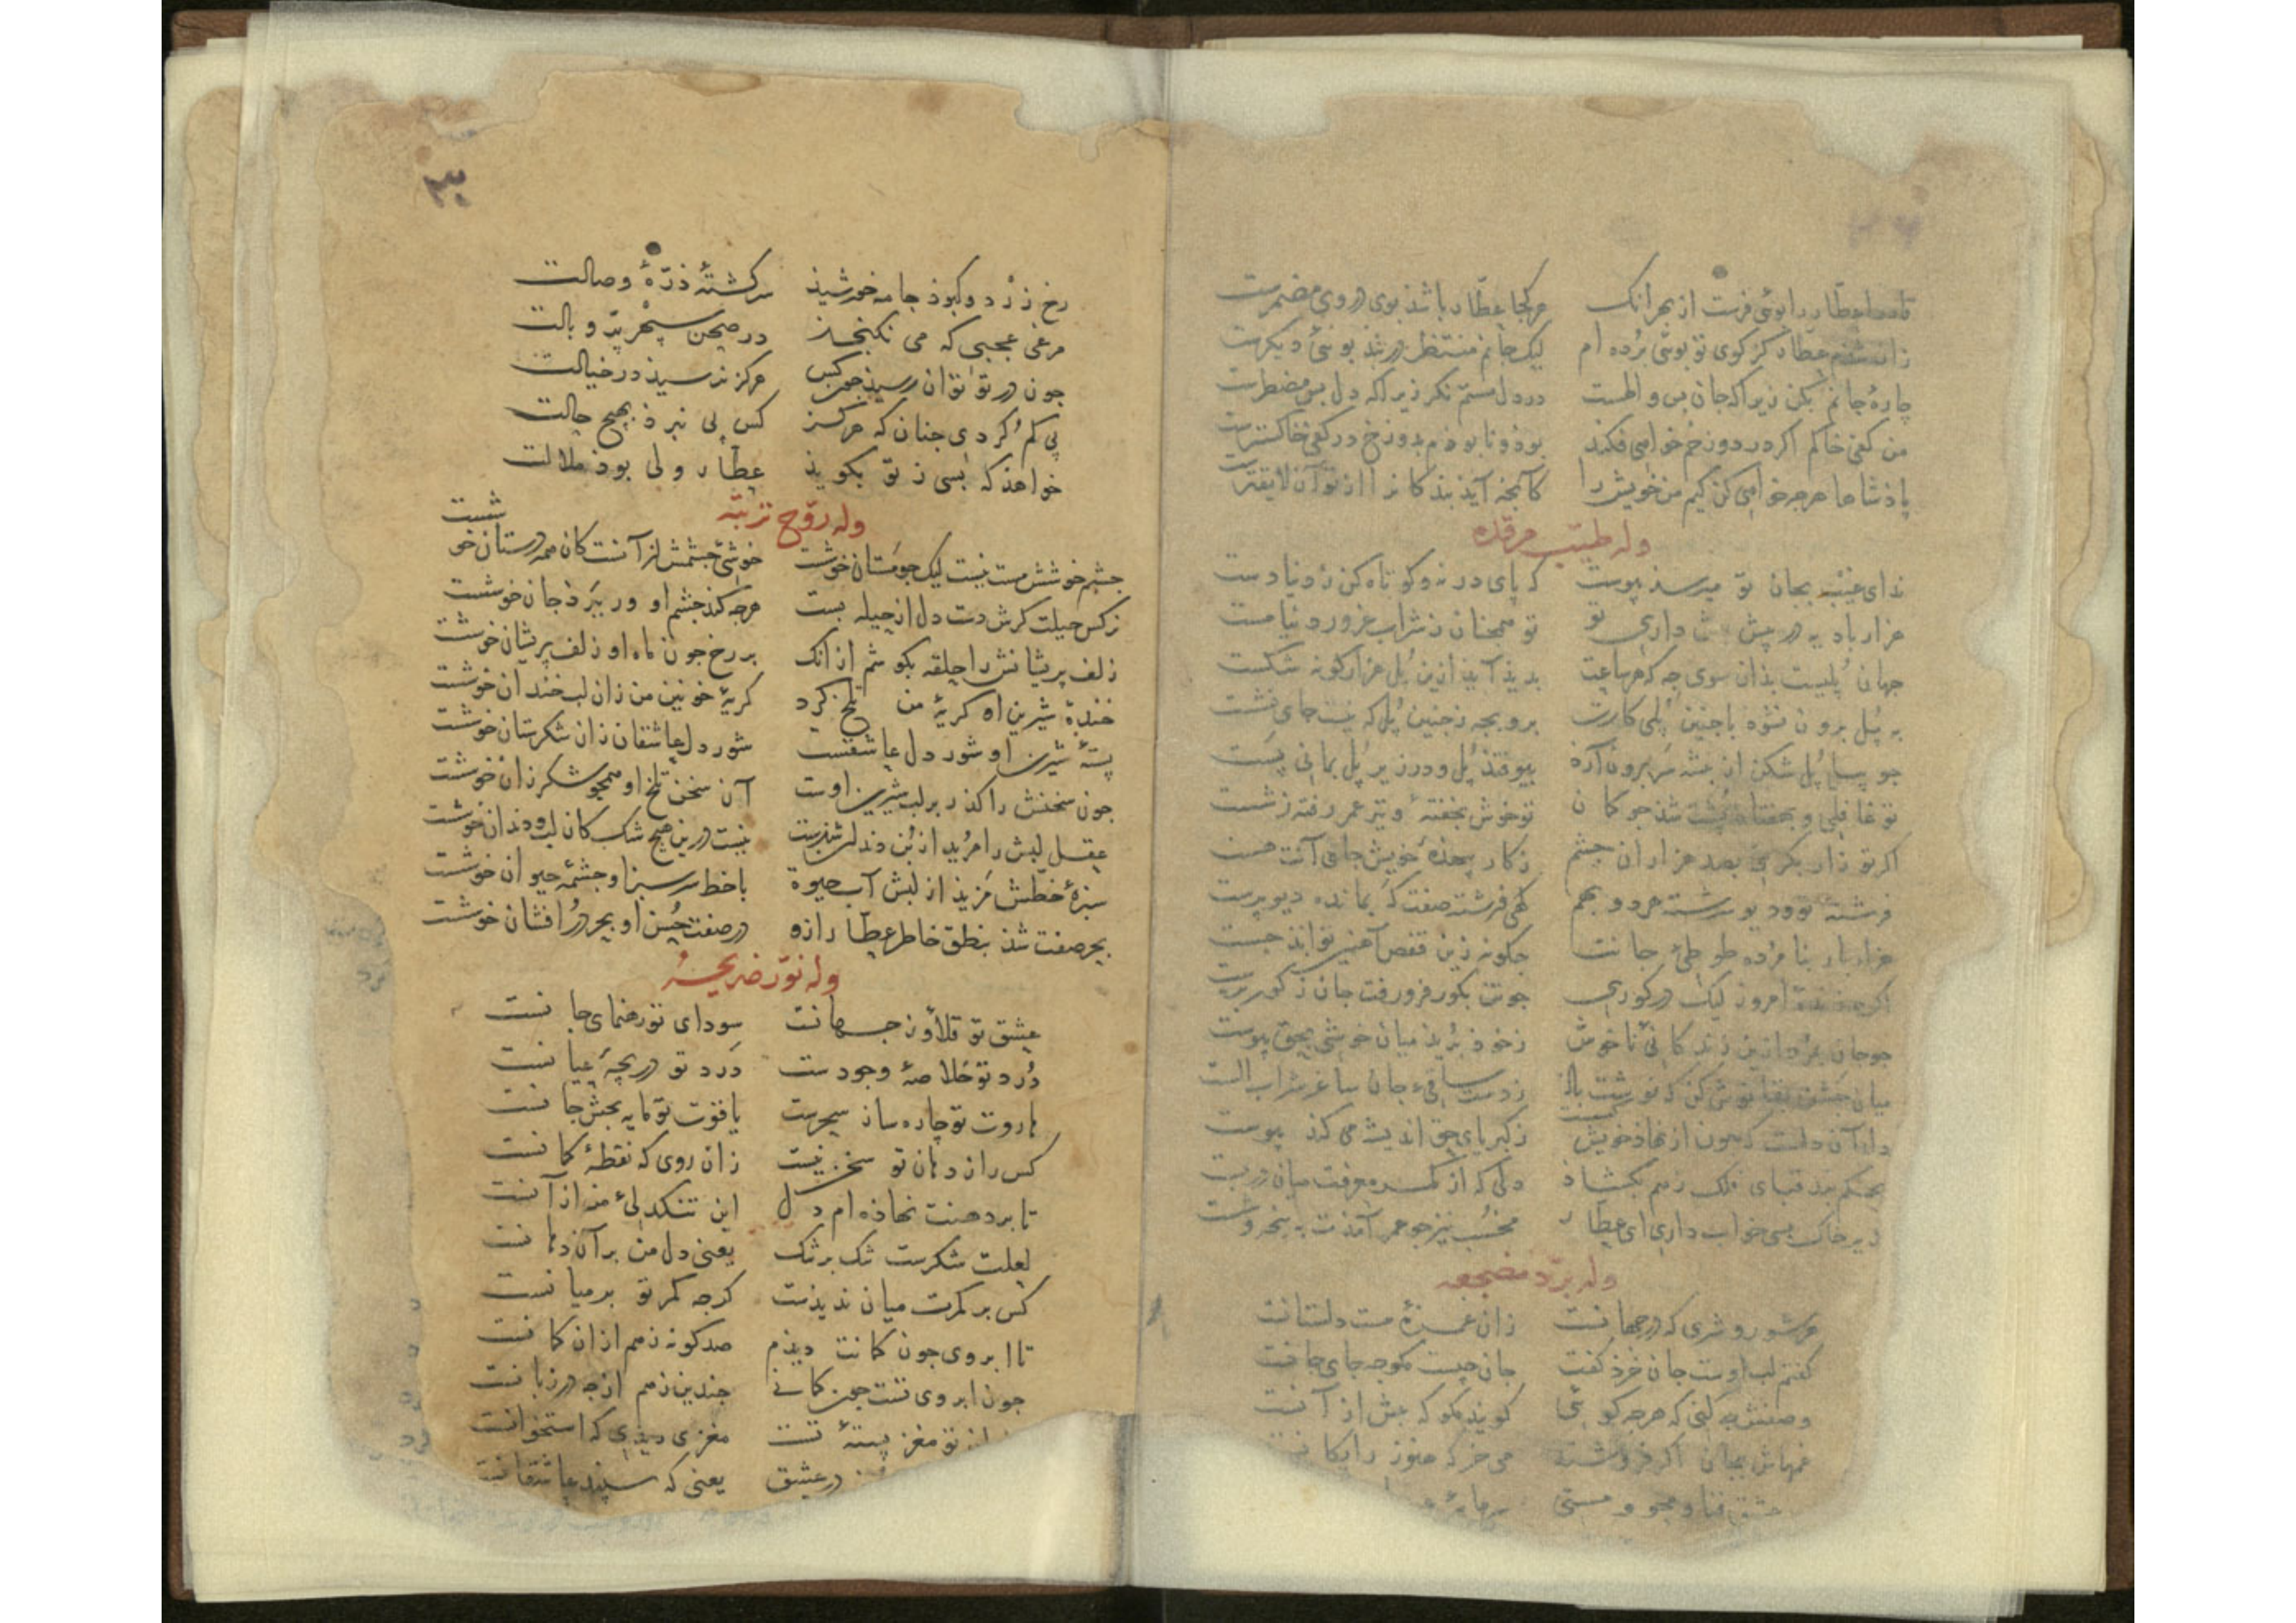 تا دهد عطار را بوئی فرست از بهر آنک هر کجا عطار باشد بوی در وی مضمرست
زانک شذم عطار کز کوی تو بوئی برده ام لیک جانم منتظر در بند بوئی دیکرست
چارهٔ جانم بکن زیرا که جان بس والهست در دل مستم نکر زیرا که دل بس مضطرست
من کفی خاکم اکر در دوزخم خواهی فکند بوذ و نابوذم بدوزخ در کفی خاکسترست
پاذشاها هرچه خواهی کن کیم من خویش را کانچه آیذ بندکانرا از تو آن لایقترست
وله طیب مرقده
ندای غیب بجان تو میرسذ پیوست که پای در نه و کوتاه کن ز دنیا دست
هزار بادیه در پیش بیش داری تو تو همچنان ز شراب غرور دنیا مست
جهان پلیست بذان سوی جه که هر ساعت بدیذ آیذ ازین پل هزار کونه شکست
به پل برون نشوذ باجنین پلی کارت برو بجه زجنین پل که نیست جای نشست
جو سیل پل شکن از بنه سر برون آرذ بیوفتذ پل و در زیر پل بمانی پست
تو غافلی و بهفتاذ پشت شذ جو کمان تو خوش بخفتهٔ و تیر عمر رفته ز شست
اکر تو زار بکریی بصد هزاران جشم ز کار بیهذهٔ خویش جای آنت هست
فرشتهٔ تو و دیو سرشته هر دو بهم کهی فرشته صفت که بمانده دیوپرست
هزار بار بنا مرده طوطی جانت جکونه زین قفص آهنین تواند جست
اکر جه زندهٔ امروز لیک در کوری جو تن بکور فرو رفت جان ز کور برست
جو جان بمرد ازین زندکانی ناخوش ز خوذ بریذ و میان خوشی بحق پیوست
میان جشن بقا نوش کن که نوشت باذ ز دست ساقی جان ساغر شراب الست
دل آن دلست که جون از نهاد خویش کسست ز کبریای حق اندیشه می کند پیوست
بحکم بند قبای فلک ز هم بکشاذ دلی که از کمر معرفت میان دربست
بزیر خاک بسی خواب داری ای عطار مخسب نیز جو عمر آمدت به پنجه و شست
وله برد مضجعه
هر شور و شری که در جهانست زان غمزهٔ مست دلستانست
کفتم لب اوست جان خرذ کفت جان چیست مکو چه جای جانست
وصفش جه کنی که هرجه کوئی کویند مکو که بیش از آنست
غمهاش بجان اکر فروشند می خر که هنوز رایکانست
عشق فنا و محو و مستی سرمایهٔ
۳۰
رخ زرد و کبوذ جامه خورشیذ سرکشتهٔ ذرهٔ وصالت
مرغی عجبی که می نکنجذ در صحن سپهر پر و بالت
جون در تو توان رسیذ جون کس هرکز نرسیذ در خیالت
پی کم کردی جنان که هرکز کس پی نبرذ بهیچ حالت
خواهذ که بسی ز تو بکویذ عطار ولی بوذ ملالت
وله روح تربته
جشم خوشش مست نیست لیک جو مستان خوشست خوشئ جشمش از آنست کان همه دستان خوشست
نرکس حیلت کرش دست دل از حیله بست هرجه کند جشم او ور ببرذ جان خوشست
زلف پریشانش را حلقه بکوشم از آنک بر رخ جون ماه او زلف پریشان خوشست
خندهٔ شیرین او کریهٔ من تلخ کرد کریهٔ خونین من زان لب خندان خوشست
پستهٔ شیرین او شور دل عاشقست شور دل عاشقان زان شکرستان خوشست
جون سخنش را کذر بر لب شیرین اوست آن سخن تلخ او همجو شکر زان خوشست
عقل لبش را مرید از بن دندان شذست نیست درین هیچ شک کان لب و دندان خوشست
سبزهٔ خطش مزیذ از لبش آب حیوة با خط سرسبز او جشمهٔ حیوان خوشست
بحر صفت شذ بنطق خاطر عطار ازو در صفت حسن او بحر درافشان خوشست
وله نور ضریحه
عشق تو قلاوز جهانست سودای تو رهنمای جانست
درد تو خلاصهٔ وجودست درد تو دریچهٔ عیانست
هاروت تو چاره ساز سحرست یاقوت تو مایه بخش جانست
کس را ز دهان تو سخن نیست زان روی که نقطهٔ کمانست
تا بر دهنت نهاذه ام دل این تنکدلئ من از آنست
لعلت شکرست تنک بر تنک یعنی دل من بر آن دهانست
کس بر کمرت میان ندیدست کرجه کمر تو بر میانست
تا ابروی جون کمانت دیذم صد کونه زهم از ان کمانست
جون ابروی تست جون کمانی جندین زهم از چه در زبانست
تو مغز پستهٔ تست مغزی دیذی که استخوانست
در عشق یعنی که سپند عاشقانست